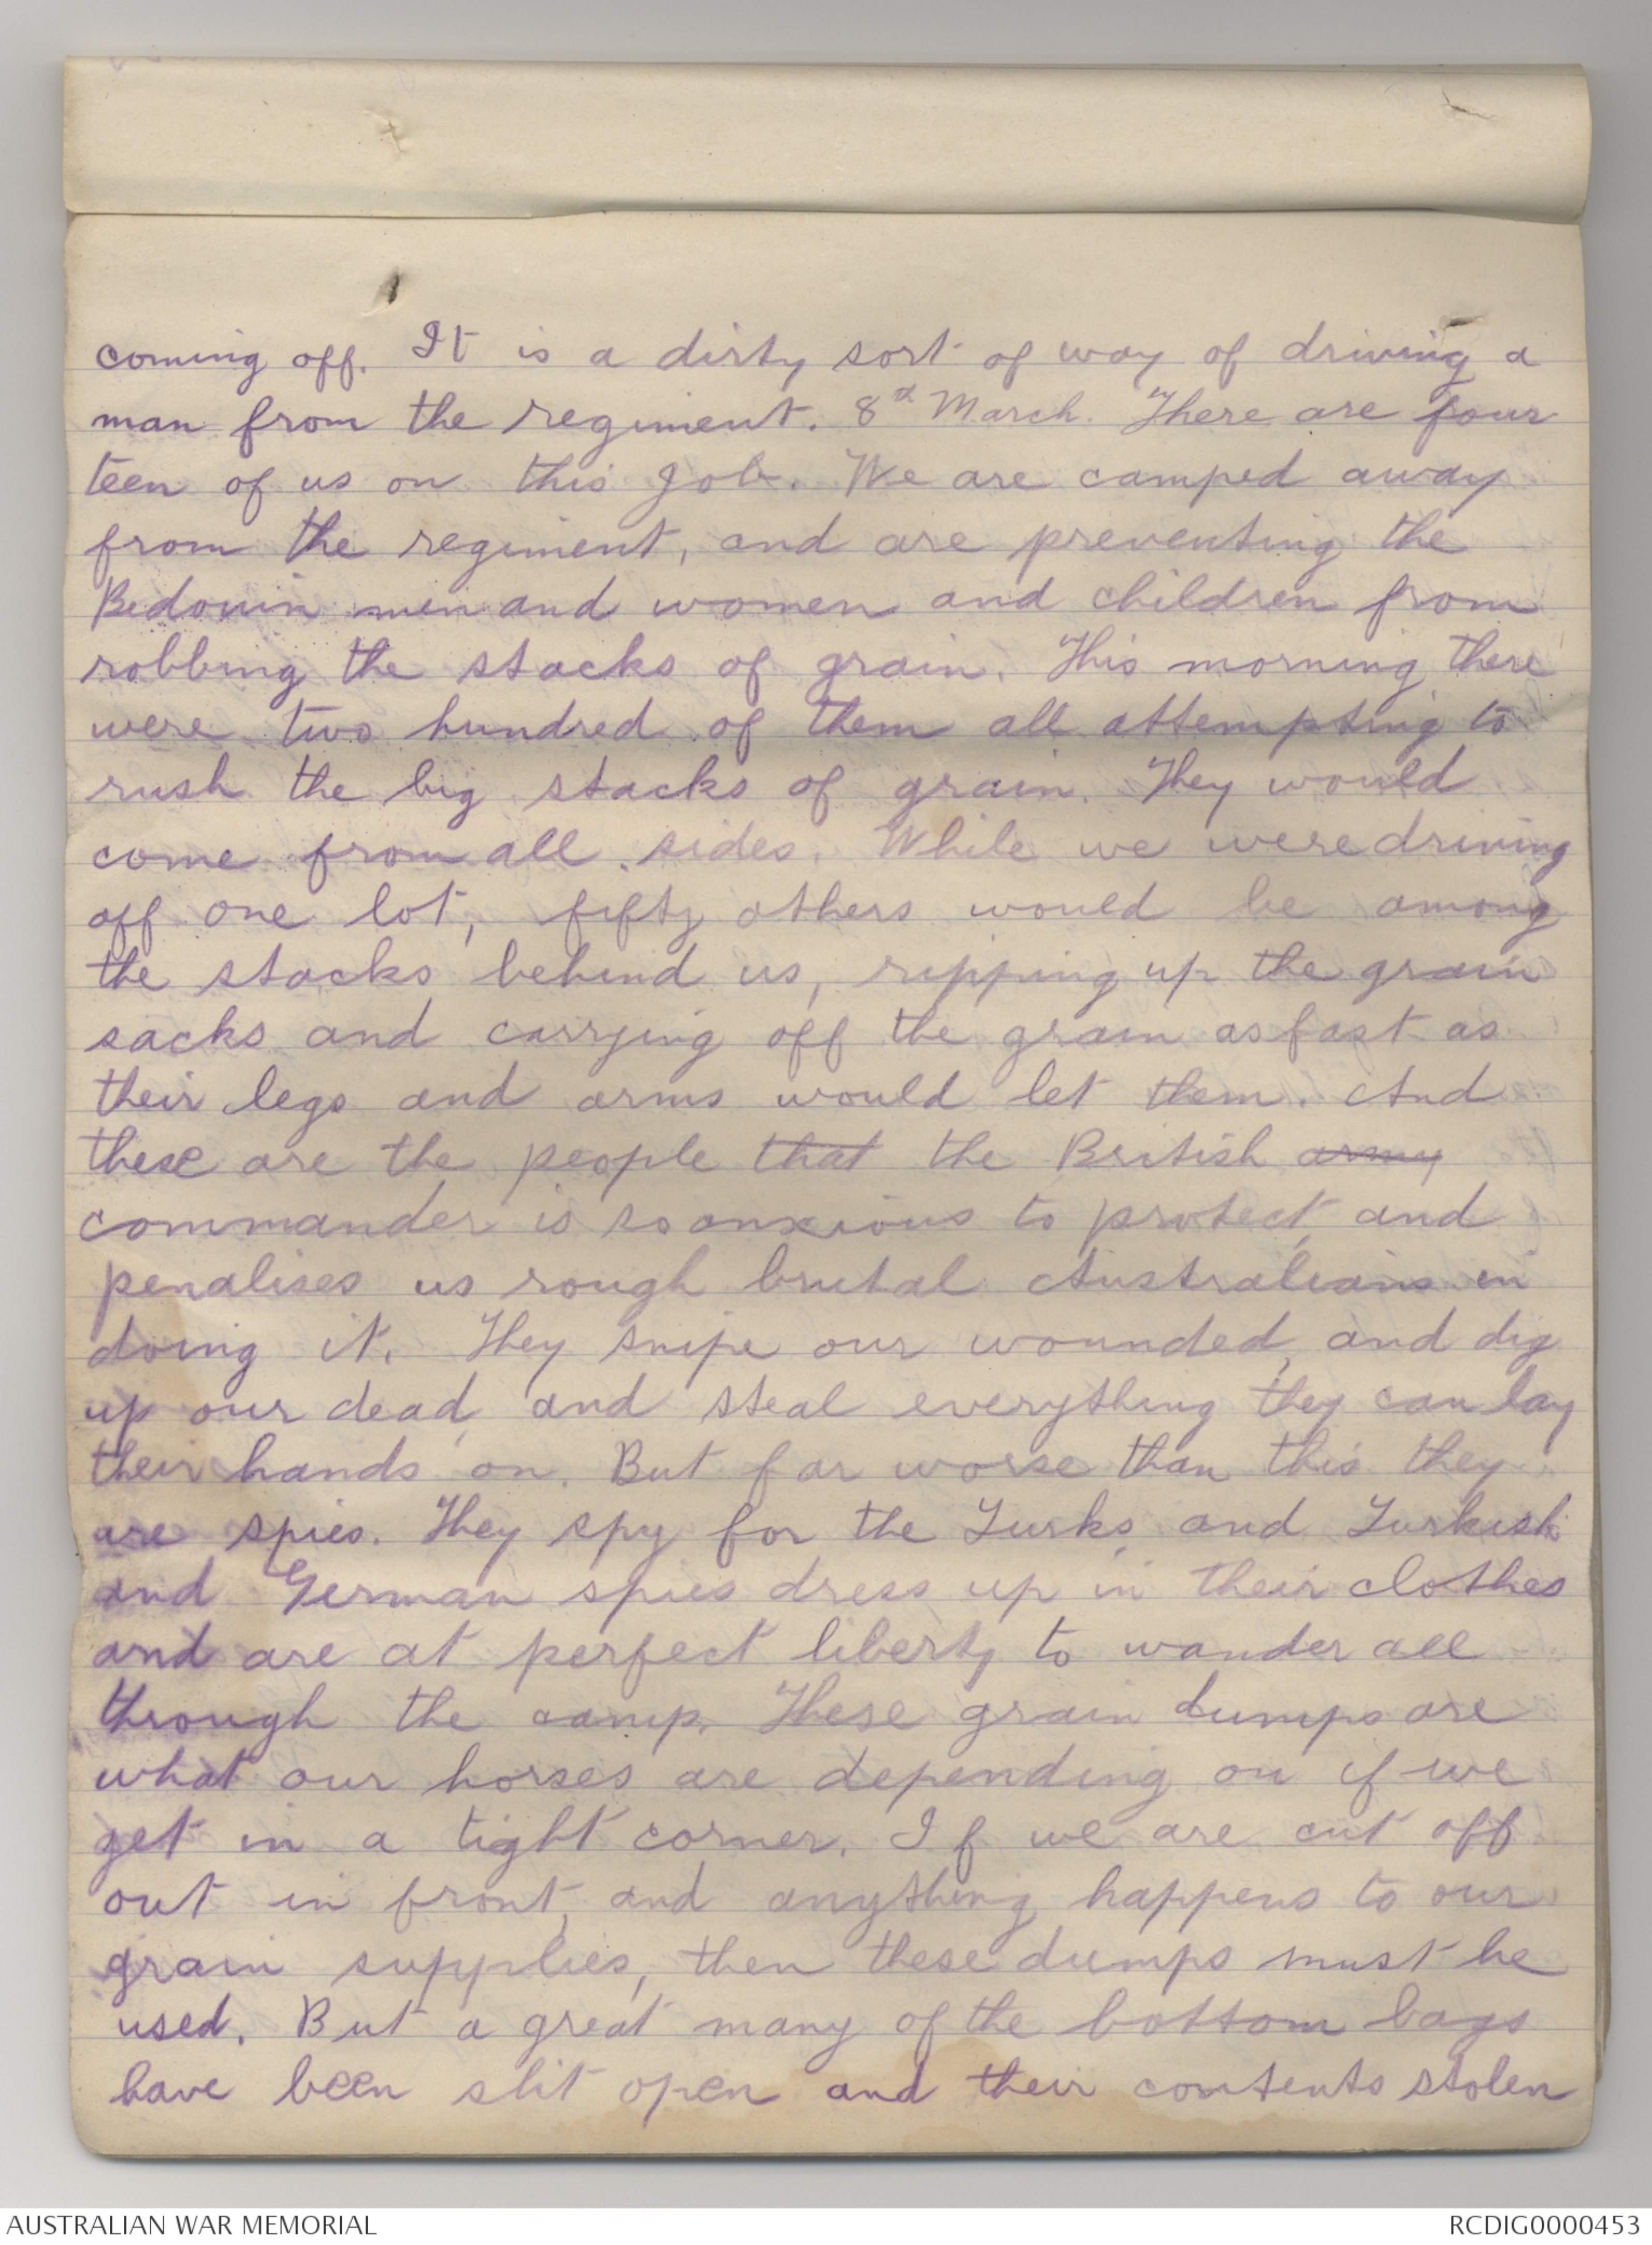 coming off. It is a dirty sort of way of driving a
man from the regiment. 8th March. There are four
teen of us on this job. We are camped away
from the regiment, and are preventing the
Bedouin men and women and children from
robbing the stacks of grain. This morning there
were two hundred of them all attempting to
rush the big stacks of grain. They would
come from all sides. While we were driving
off one lot, fifty others would be among
the stacks behind us, ripping up the grain
sacks and carrying off the grain as fast as
their legs and arms would let them. And
these are the people that the British army
commander is so anxious to protect, and
penalises us rough brutal Australians in
doing it. They snipe our wounded, and dig
up our dead, and steal everything they can lay
their hands on. But far worse than this they
are spies. They spy for the Turks, and Turkish
and German spies dress up in their clothes
and are at perfect liberty to wander all
through the camp. These grain dumps are
what our horses are depending on if we
get in a tight corner. If we are cut off
out in front, and anything happens to our
grain supplies, then these dumps must be
used. But a great many of the bottom bags
have been slit open and their contents stolen
AUSTRALIAN WAR MEMORIAL
RCDIG0000453